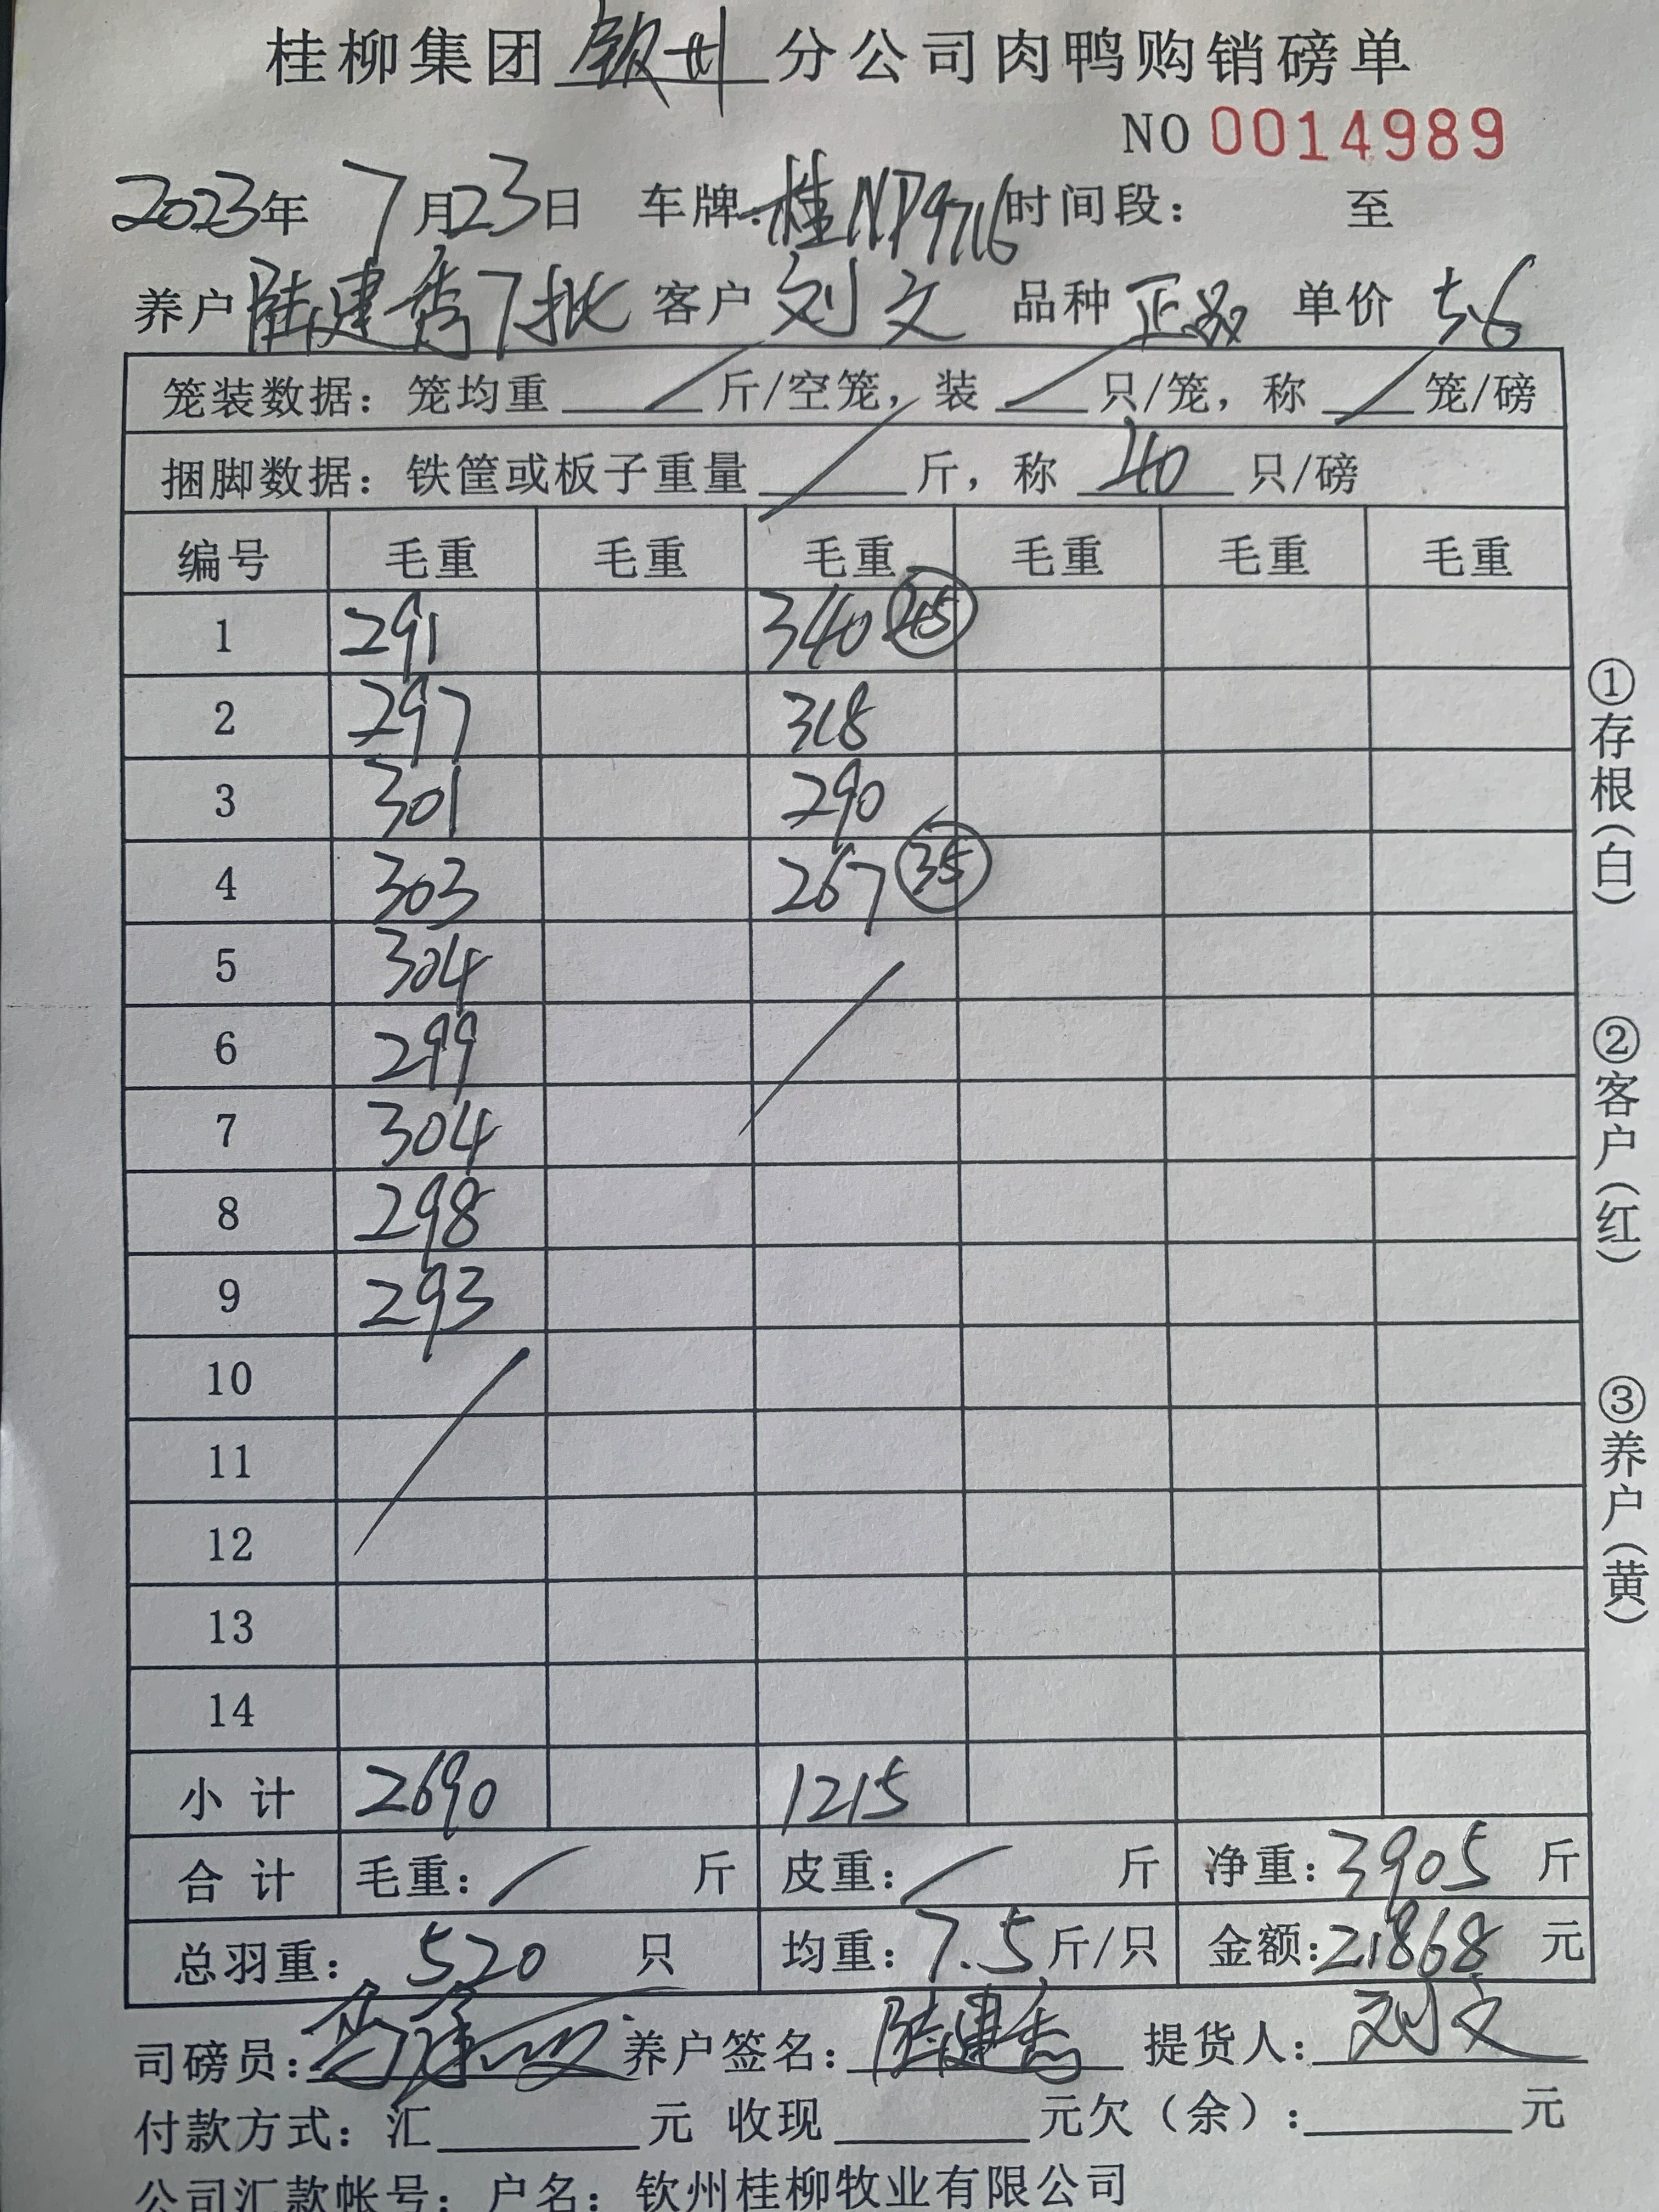 桂柳集团 钦州 分公司肉鸭购销磅单
NO 0014989
2023年 7月23日 车牌:桂NP9716 时间段: 至
养户 陆建秀7批 客户 刘文 品种 正品 单价 5.6
笼装数据:笼均重 / 斤/空笼,装 / 只/笼,称 / 笼/磅
捆脚数据:铁筐或板子重量 / 斤,称 40 只/磅
编号 毛重 毛重 毛重 毛重 毛重 毛重
1 291 340 45
2 297 318
3 301 290
4 303 267 35
5 304
6 299
7 304
8 298
9 293
10
11
12
13
14
小计 2690 1215
合计 毛重: / 斤 皮重: / 斤 净重:3905 斤
总羽重: 520 只 均重:7.5斤/只 金额:21868 元
司磅员: 养户签名:陆建秀 提货人:刘文
付款方式:汇 元 收现 元欠(余): 元
公司汇款帐号:户名:钦州桂柳牧业有限公司
①存根(白)
②客户(红)
③养户(黄)